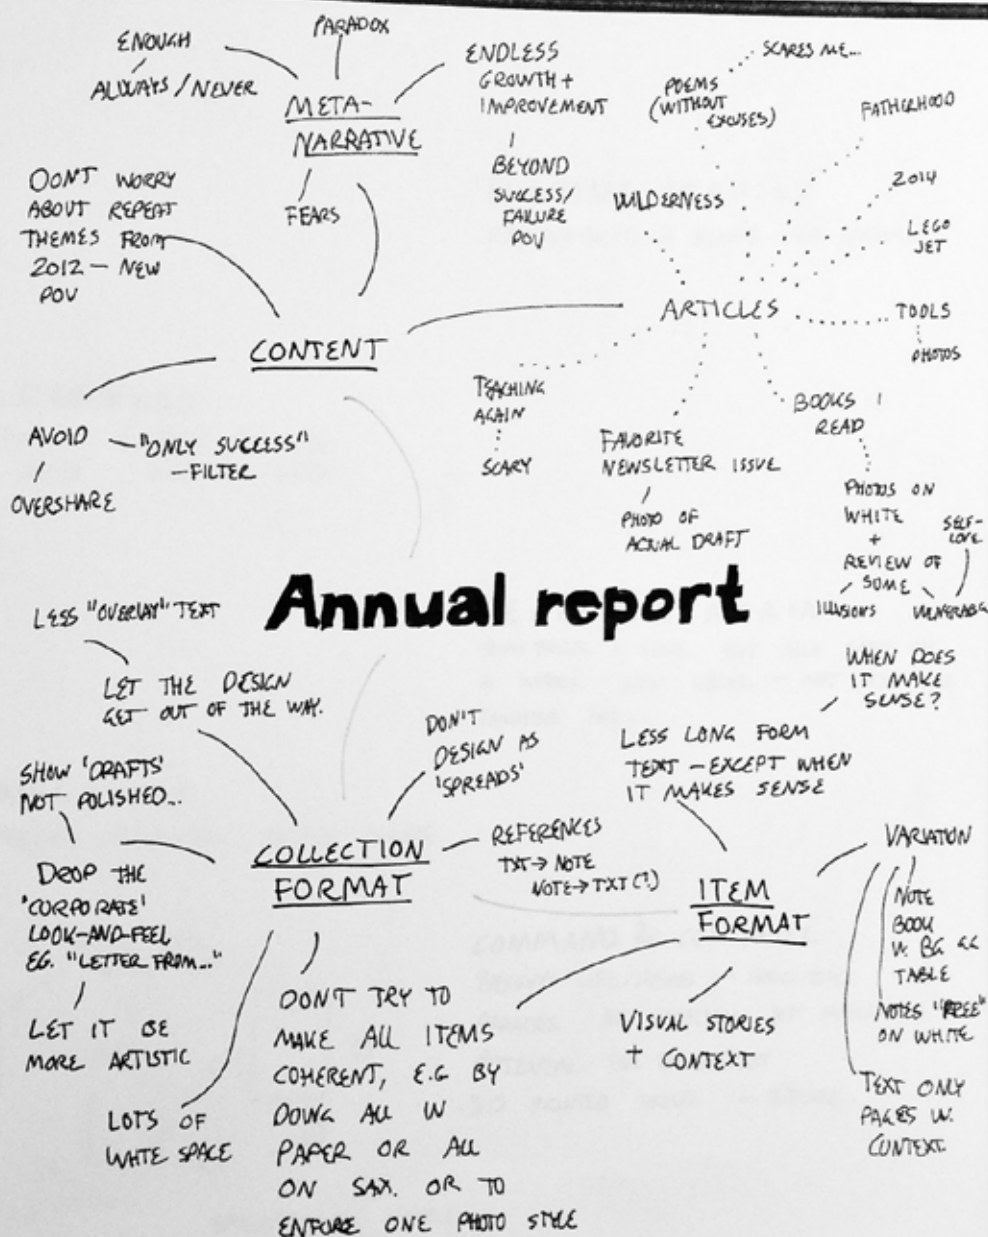 ENOUGH
ALWAYS / NEVER
PARADOX
META-
NARRATIVE
FEARS
ENDLESS
GROWTH +
IMPROVEMENT
BEYOND
SUCCESS/
FAILURE
POV
DON'T WORRY
ABOUT REPEAT
THEMES FROM
2012 — NEW
POV
CONTENT
AVOID
OVERSHARE
"ONLY SUCCESS"
-FILTER
SCARES ME...
POEMS
(WITHOUT
EXCUSES)
FATHERHOOD
WILDERNESS
2014
LEGO
JET
ARTICLES
TOOLS
PHOTOS
TEACHING
AGAIN
SCARY
FAVORITE
NEWSLETTER ISSUE
PHOTO OF
ACTUAL DRAFT
BOOKS I
READ
PHOTOS ON
WHITE
+
REVIEW OF
SOME
ILLUSIONS
SELF-
LOVE
Annual report
LESS "OVERLAY" TEXT
LET THE DESIGN
GET OUT OF THE WAY.
SHOW 'DRAFTS'
NOT POLISHED...
DROP THE
'CORPORATE'
LOOK-AND-FEEL
EG. "LETTER FROM..."
LET IT BE
MORE ARTISTIC
COLLECTION
FORMAT
DON'T
DESIGN AS
'SPREADS'
REFERENCES
TXT → NOTE
NOTE → TXT (?)
LOTS OF
WHITE SPACE
DON'T TRY TO
MAKE ALL ITEMS
COHERENT, E.G BY
DOING ALL W
PAPER OR ALL
ON SAX. OR TO
ENFORE ONE PHOTO STYLE
WHEN DOES
IT MAKE
SENSE?
LESS LONG FORM
TEXT — EXCEPT WHEN
IT MAKES SENSE
ITEM
FORMAT
VISUAL STORIES
+ CONTEXT
VARIATION
NOTE
BOOK
W. BG
TABLE
NOTES "FREE"
ON WHITE
TEXT ONLY
PAGES W.
CONTEXT.